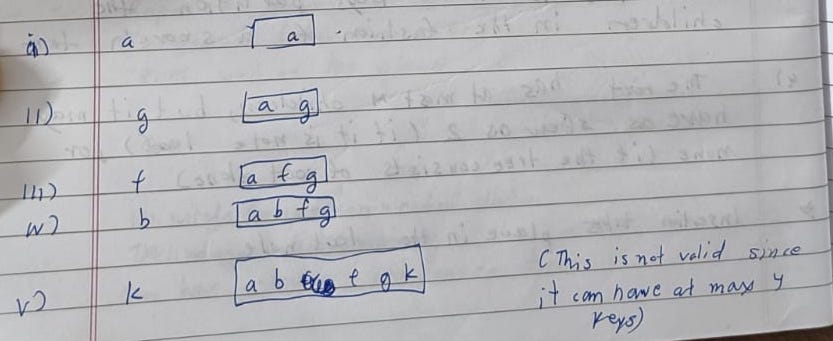 i) a a
ii) g a g
iii) f a f g
iv) b a b f g
v) k a b f g k
(This is not valid since
it can have at max 4
keys)